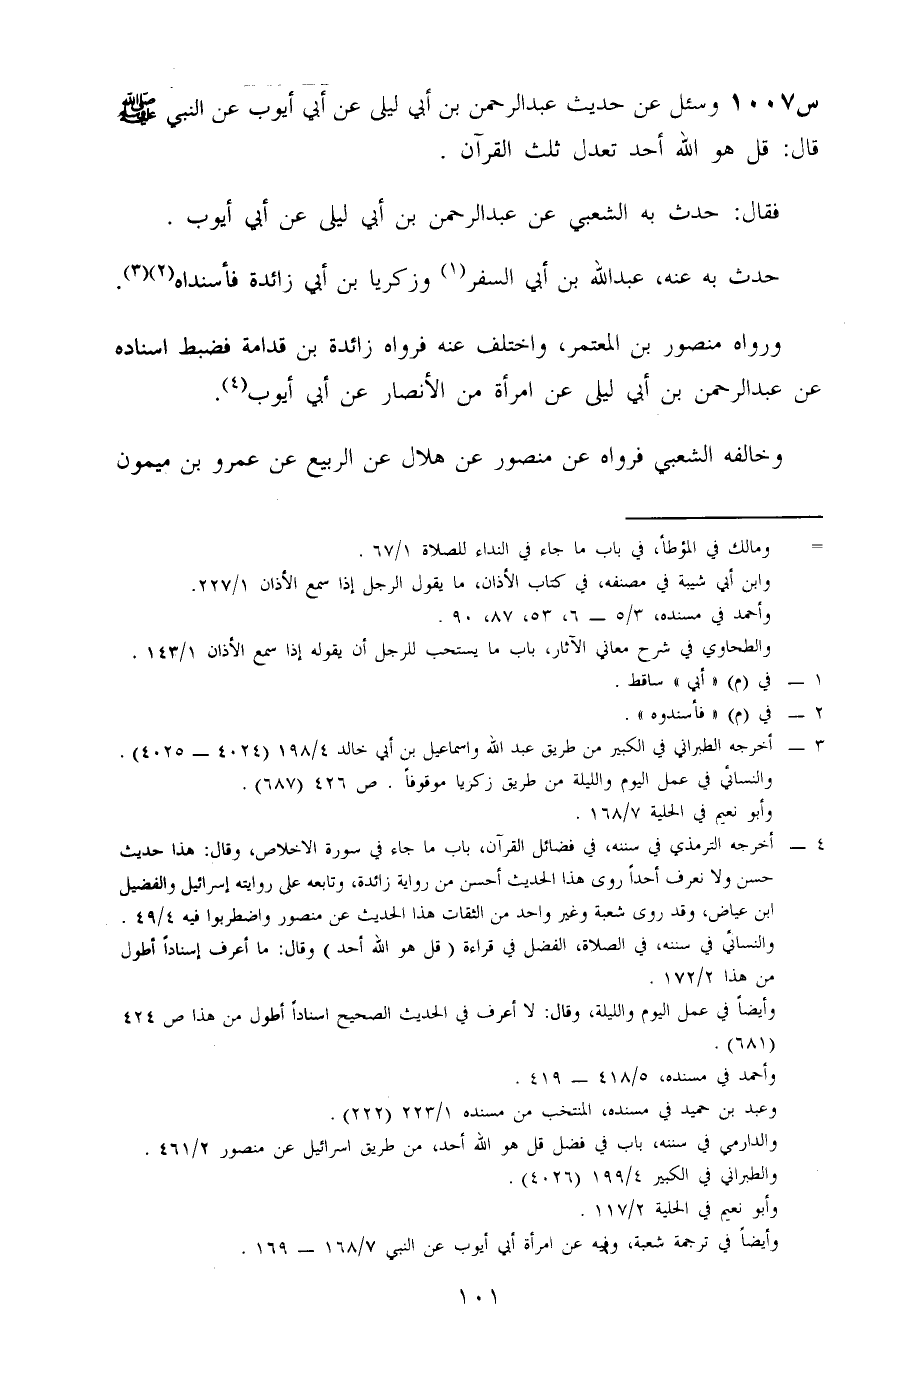 س١٠٠٧ وسئل عن حديث عبدالرحمن بن أبي ليلى عن أبي أيوب عن النبي ﷺ
قال: قل هو الله أحد تعدل ثلث القرآن .
فقال: حدث به الشعبي عن عبدالرحمن بن أبي ليلى عن أبي أيوب .
حدث به عنه، عبدالله بن أبي السفر(١) وزكريا بن أبي زائدة فأسنداه(٢)(٣).
ورواه منصور بن المعتمر، واختلف عنه فرواه زائدة بن قدامة فضبط اسناده
عن عبدالرحمن بن أبي ليلى عن امرأة من الأنصار عن أبي أيوب(٤).
وخالفه الشعبي فرواه عن منصور عن هلال عن الربيع عن عمرو بن ميمون
= ومالك في المؤطأ، في باب ما جاء في النداء للصلاة ٦٧/١ .
وابن أبي شيبة في مصنفه، في كتاب الأذان، ما يقول الرجل إذا سمع الأذان ٢٢٧/١.
وأحمد في مسنده، ٥/٣ ــ ٦، ٥٣، ٨٧، ٩٠ .
والطحاوي في شرح معاني الآثار، باب ما يستحب للرجل أن يقوله إذا سمع الأذان ١٤٣/١ .
١ ــ في (م) « أبي » ساقط .
٢ ــ في (م) « فأسندوه » .
٣ ــ أخرجه الطبراني في الكبير من طريق عبد الله واسماعيل بن أبي خالد ١٩٨/٤ (٤٠٢٤ ــ ٤٠٢٥) .
والنسائي في عمل اليوم والليلة من طريق زكريا موقوفاً . ص ٤٢٦ (٦٨٧) .
وأبو نعيم في الحلية ١٦٨/٧ .
٤ ــ أخرجه الترمذي في سننه، في فضائل القرآن، باب ما جاء في سورة الاخلاص، وقال: هذا حديث
حسن ولا نعرف أحداً روى هذا الحديث أحسن من رواية زائدة، وتابعه على روايته إسرائيل والفضيل
ابن عياض، وقد روى شعبة وغير واحد من الثقات هذا الحديث عن منصور واضطربوا فيه ٤٩/٤ .
والنسائي في سننه، في الصلاة، الفضل في قراءة ( قل هو الله أحد ) وقال: ما أعرف إسناداً أطول
من هذا ١٧٢/٢ .
وأيضاً في عمل اليوم والليلة، وقال: لا أعرف في الحديث الصحيح اسناداً أطول من هذا ص ٤٢٤
(٦٨١) .
وأحمد في مسنده، ٤١٨/٥ ــ ٤١٩ .
وعبد بن حميد في مسنده، المنتخب من مسنده ٢٢٣/١ (٢٢٢) .
والدارمي في سننه، باب في فضل قل هو الله أحد، من طريق اسرائيل عن منصور ٤٦١/٢ .
والطبراني في الكبير ١٩٩/٤ (٤٠٢٦) .
وأبو نعيم في الحلية ١١٧/٢ .
وأيضاً في ترجمة شعبة، وفيه عن امرأة أبي أيوب عن النبي ١٦٨/٧ ــ ١٦٩ .
١٠١